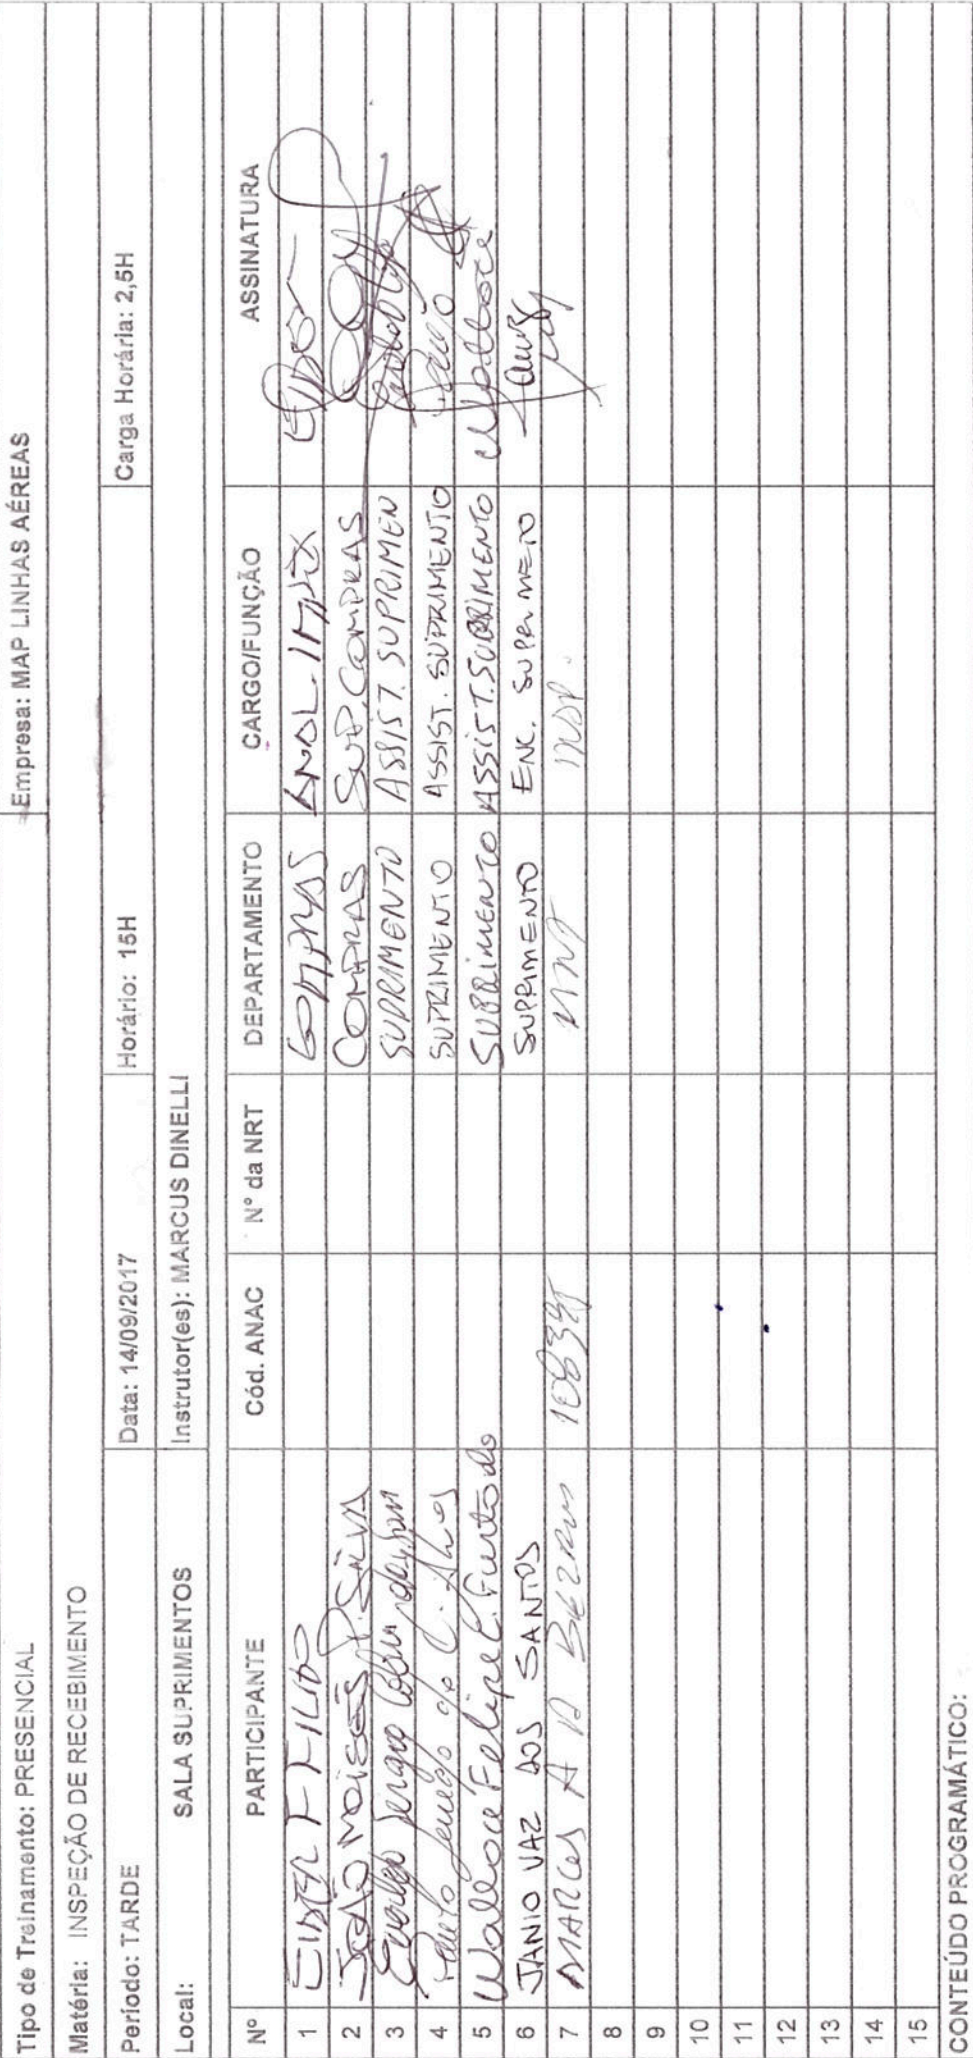 Tipo de Treinamento: PRESENCIAL Empresa: MAP LINHAS AÉREAS
Matéria: INSPEÇÃO DE RECEBIMENTO
Período: TARDE Data: 14/09/2017 Horário: 15H Carga Horária: 2,5H
Local: SALA SUPRIMENTOS Instrutor(es): MARCUS DINELLI
Nº PARTICIPANTE Cód. ANAC Nº da NRT DEPARTAMENTO CARGO/FUNÇÃO ASSINATURA
1 F FILHO COMPRAS
2 JOÃO MOISES P. SILVA COMPRAS SUP. COMPRAS
3 SUPRIMENTO ASSIST. SUPRIMEN
4 SUPRIMENTO ASSIST. SUPRIMENTO Paulo
5 Wallace Felipe C. Furtado SUPRIMENTO ASSIST. SUPRIMENTO Wallace
6 JANIO VAZ DOS SANTOS SUPRIMENTO ENC. SUPRIMETO
7 MARCOS A D BEZERRA MNT INSP.
8
9
10
11
12
13
14
15
CONTEÚDO PROGRAMÁTICO: